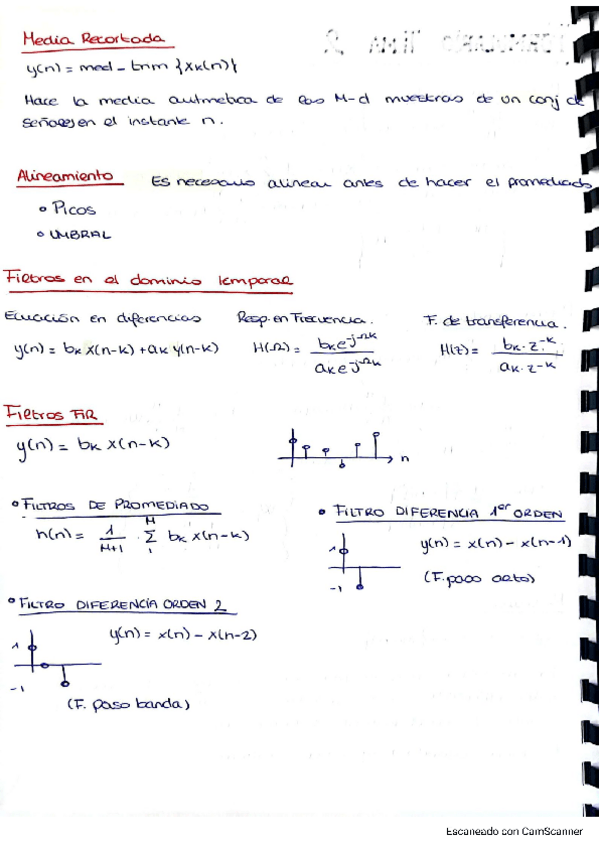 Media Recortada
y(n) = med_tnm {xk(n)}
Hace la media aritmetica de las M-d muestras de un conj de
señales en el instante n.
Alineamiento Es necesario alinear antes de hacer el promediado
• Picos
• UMBRAL
Filtros en el dominio temporal
Ecuación en diferencias Resp. en Frecuencia. F. de transferencia.
y(n) = bk x(n-k) + ak y(n-k) H(Ω) = bk e^-jΩk / ak e^-jΩk H(z) = bk · z^-k / ak · z^-k
Filtros FIR
y(n) = bk x(n-k)
n
• FILTROS DE PROMEDIADO
h(n) = 1/M+1 · Σ_1^M bk x(n-k)
• FILTRO DIFERENCIA 1er ORDEN
1
-1
y(n) = x(n) - x(n-1)
(F. paso alto)
• FILTRO DIFERENCIA ORDEN 2
1
-1
y(n) = x(n) - x(n-2)
(F. paso banda)
Escaneado con CamScanner